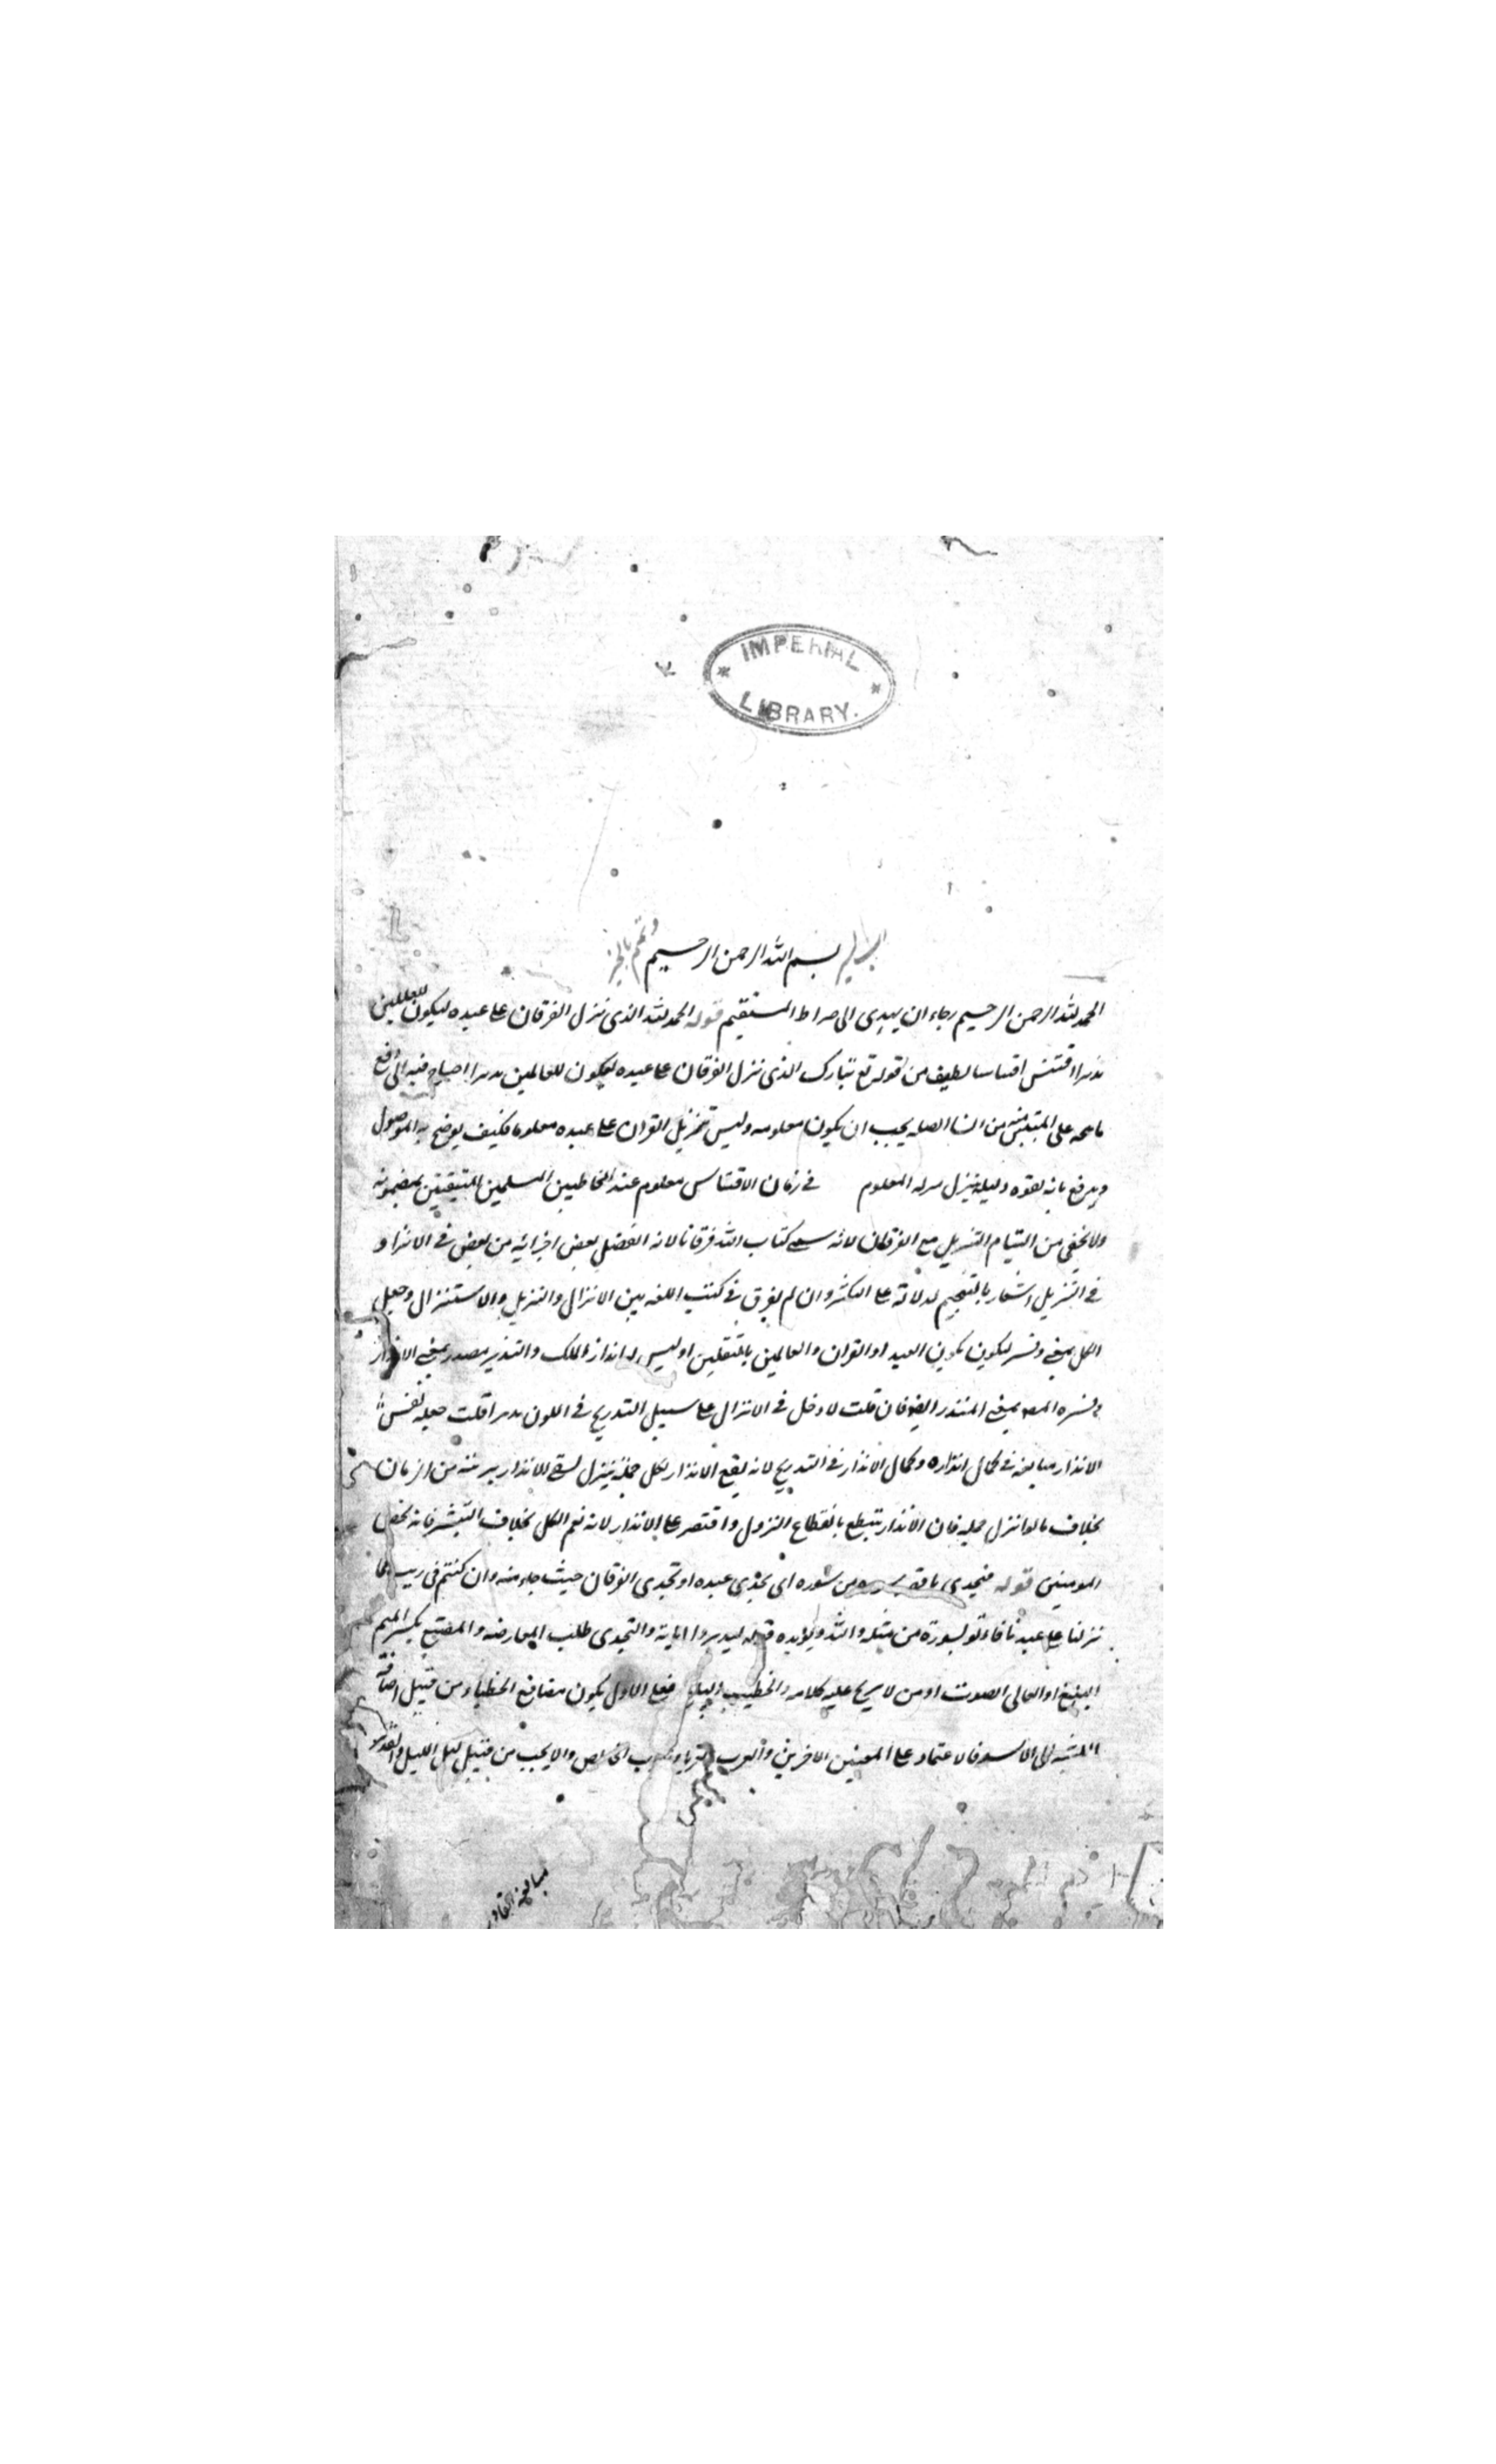 IMPERIAL
LIBRARY.
بسم الله الرحمن الرحيم وتمم بالخير
الحمد لله الرحمن الرحيم رجاء ان يهدى الى صراط المستقيم قوله الحمد لله الذى نزل الفرقان على عبده ليكون للعالمين
نذيرا اقتبس اقتباسا لطيف من قوله تع تبارك الذى نزل الفرقان على عبده ليكون للعالمين نذيرا احتياج فيه الى رفع
على المقتبس منه من ان الصله يجب ان يكون معلومه وليس تنزيل القران على عبده معلوما فكيف يوضح به الموصول
ويدفع بانه لقوه دليله ينزل منزله المعلوم فى زمان الاقتباس معلوم عند المخاطبين المسلمين المتيقنين بمضمونه
ولا يخفى من التيام التنزيل مع الفرقان لانه سمى كتاب الله فرقانا لانه انفصل بعض اجزائه من بعض فى الانزال و
فى التنزيل اشعار بالتنجيم لدلالته على التكثر وان لم يفرق فى كتب اللغه بين الانزال والتنزيل والاستنزال وجعل
الكل بمعنى وفسر ليكون بكون العبد او القران والعالمين بالثقلين اذ ليس له انذار الملك والنذير مصدر بمعنى الانذار
وفسره المص بمعنى المنذر ايضا فان قلت لا دخل فى الانزال على سبيل التدريج فى الكون نذيرا قلت جعله نفس
الانذار مبالغه فى كمال انذاره وكمال الانذار فى التدريج لانه يقع الانذار لكل جملة تنزل من الزمان
بخلاف ما لو انزل جمله فان الانذار ينقطع بانقطاع النزول واقتصر على الانذار لانه نعم الكل بخلاف التبشير فانه يخص
المومنين قوله فتحدى باقصر سوره من سوره اى تحدى عبده او تحدى الفرقان حيث جاء منه وان كنتم فى ريب مما
نزلنا على عبدنا فاءتو بسورة من مثله والله ويؤيده قوله ليدبروا اياته والتحدى طلب المعارضه والمصقع بكسر الميم
البليغ او العالى الصوت او من لا يرتج عليه كلامه والخطيب البليغ فعلى الاول يكون مصاقع الخطباء من قبيل اضافة
المشبه الى الاسد فالاعتماد على المعنين الاخرين والعرب العرباء العرب الخالص والا يجب من قبيل ليل الليل والقدير
مبالغه القادر